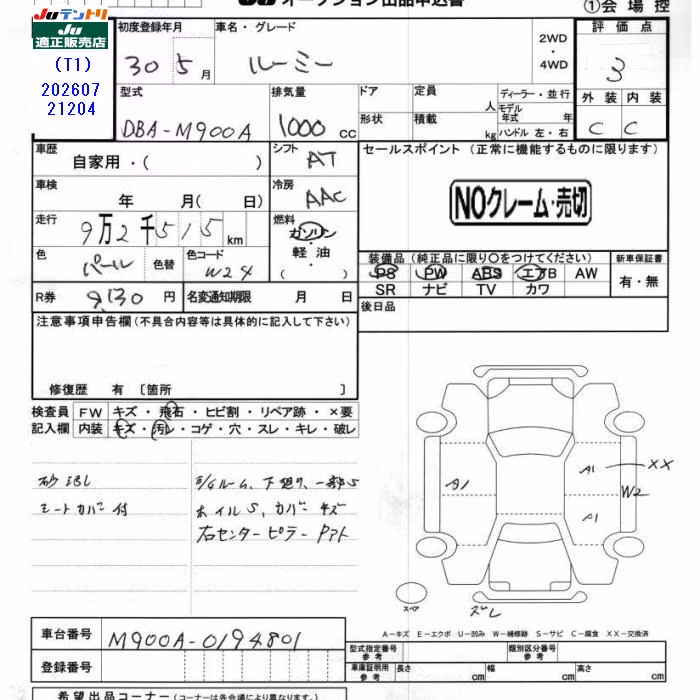 Juテントリ
Ju
適正販売店
(T1)
202607
21204
①会場控
初度登録年月
30 5月
車名・グレード
ルーミー
2WD
・
4WD
評価点
3
外装 内装
C C
型式
DBA-M900A
排気量
1000 cc
ドア
定員 人
ディーラー・並行
モデル
年式 年
形状
積載 kg
ハンドル 左・右
車歴
自家用・( )
シフト
AT
セールスポイント (正常に機能するものに限ります)
車検
年 月( 日)
冷房
AAC
NOクレーム・売切
走行
9万2千515km
燃料
ガソリン
・
軽油
・
( )
色
パール
色替
色コード
W24
装備品 (純正品に限り○をつけてください)
新車保証書
PS PW ABS エアB AW
有・無
SR ナビ TV カワ
R券
9,130 円
名変通知期限 月 日
後日品
注意事項申告欄 (不具合内容等は具体的に記入して下さい)
修復歴 有 〔箇所 〕
検査員
記入欄
FW キズ・飛石・ヒビ割・リペア跡・×要
内装 キズ・汚レ・コゲ・穴・スレ・キレ・破レ
シートカバー付
ホイルS、カバーキズ
右センターピラー Pアト
A1
A1
XX
W2
A1
スペア
ズレ
A-キズ E-エクボ U-凹み W-補修跡 S-サビ C-腐食 XX-交換済
車台番号
M900A-0194801
型式指定番号
参考
類別区分番号
参考
登録番号
車庫証明用
参考
長さ cm
幅 cm
高さ cm
希望出品コーナー (コーナーは各会場により異なります。)